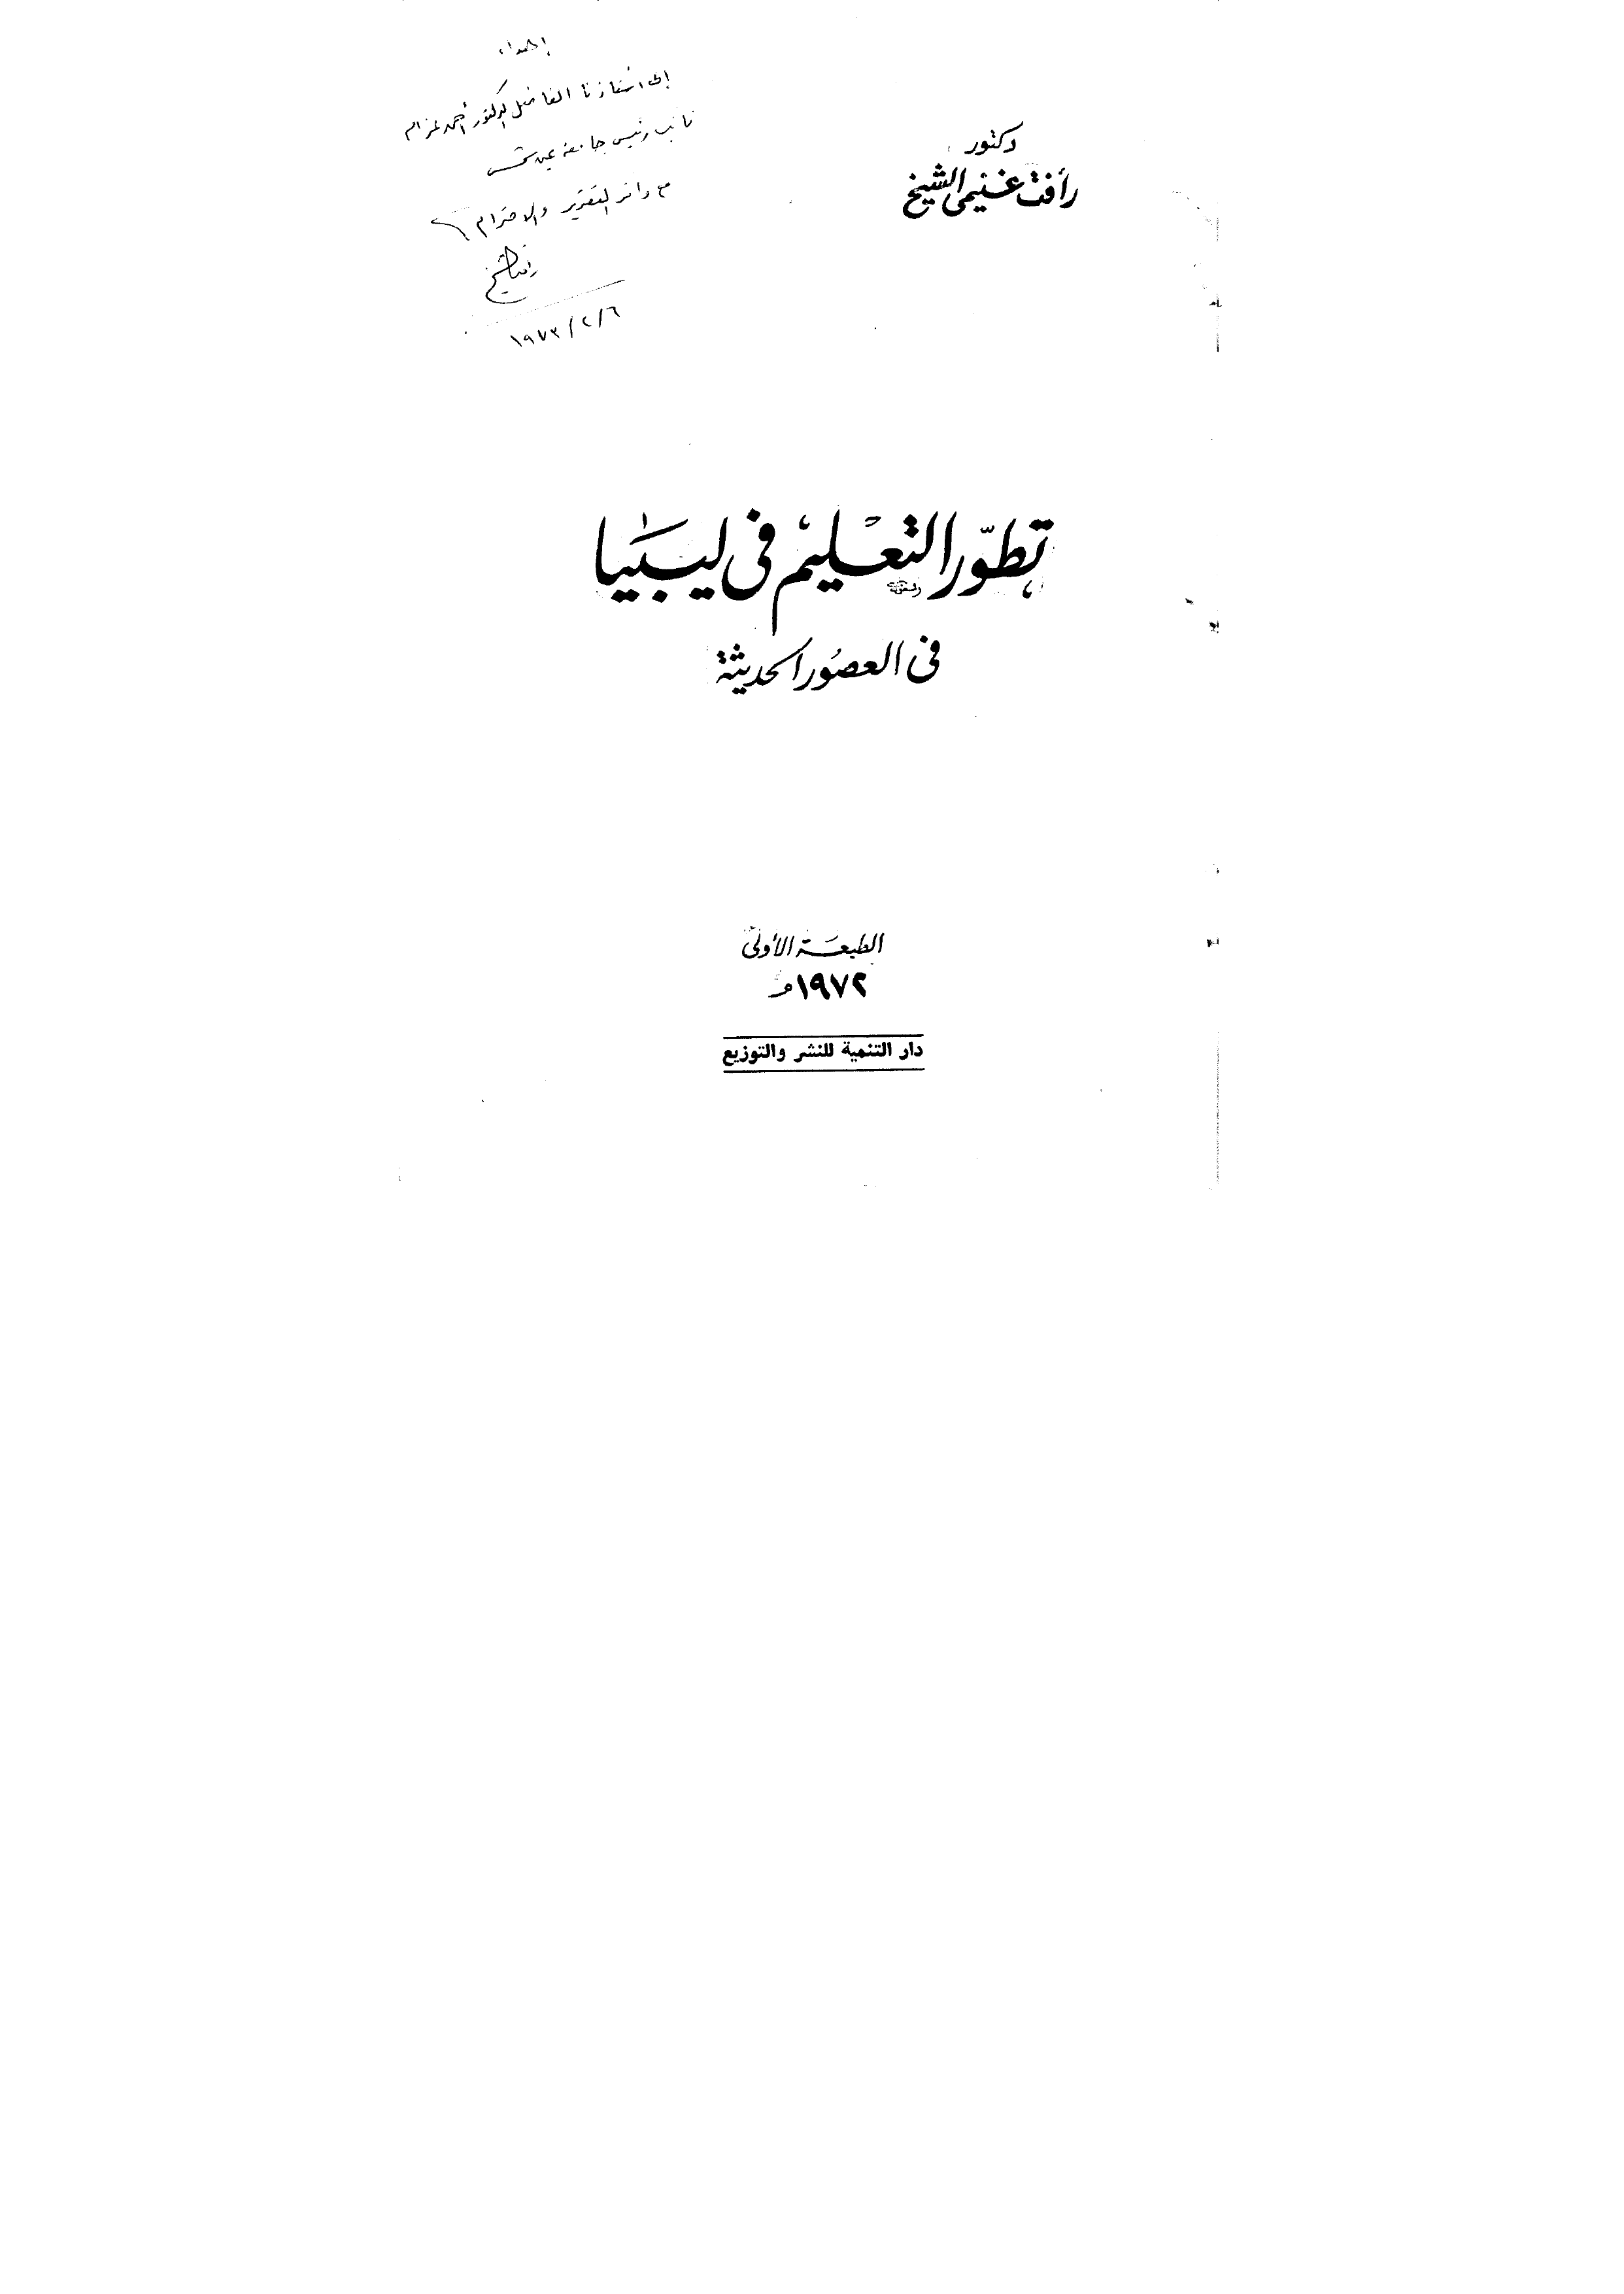 إهداء
إلى أستاذنا الفاضل الدكتور أحمد عزام
نائب رئيس جامعة عين شمس
مع وافر التقدير والاحترام
رأفت الشيخ
٦/٢/١٩٧٣
دكتور
رأفت غنيمى الشيخ
تطوّر التعليم فى ليبيا
فى العصور الحديثة
الطبعة الأولى
١٩٧٢م
دار التنمية للنشر والتوزيع